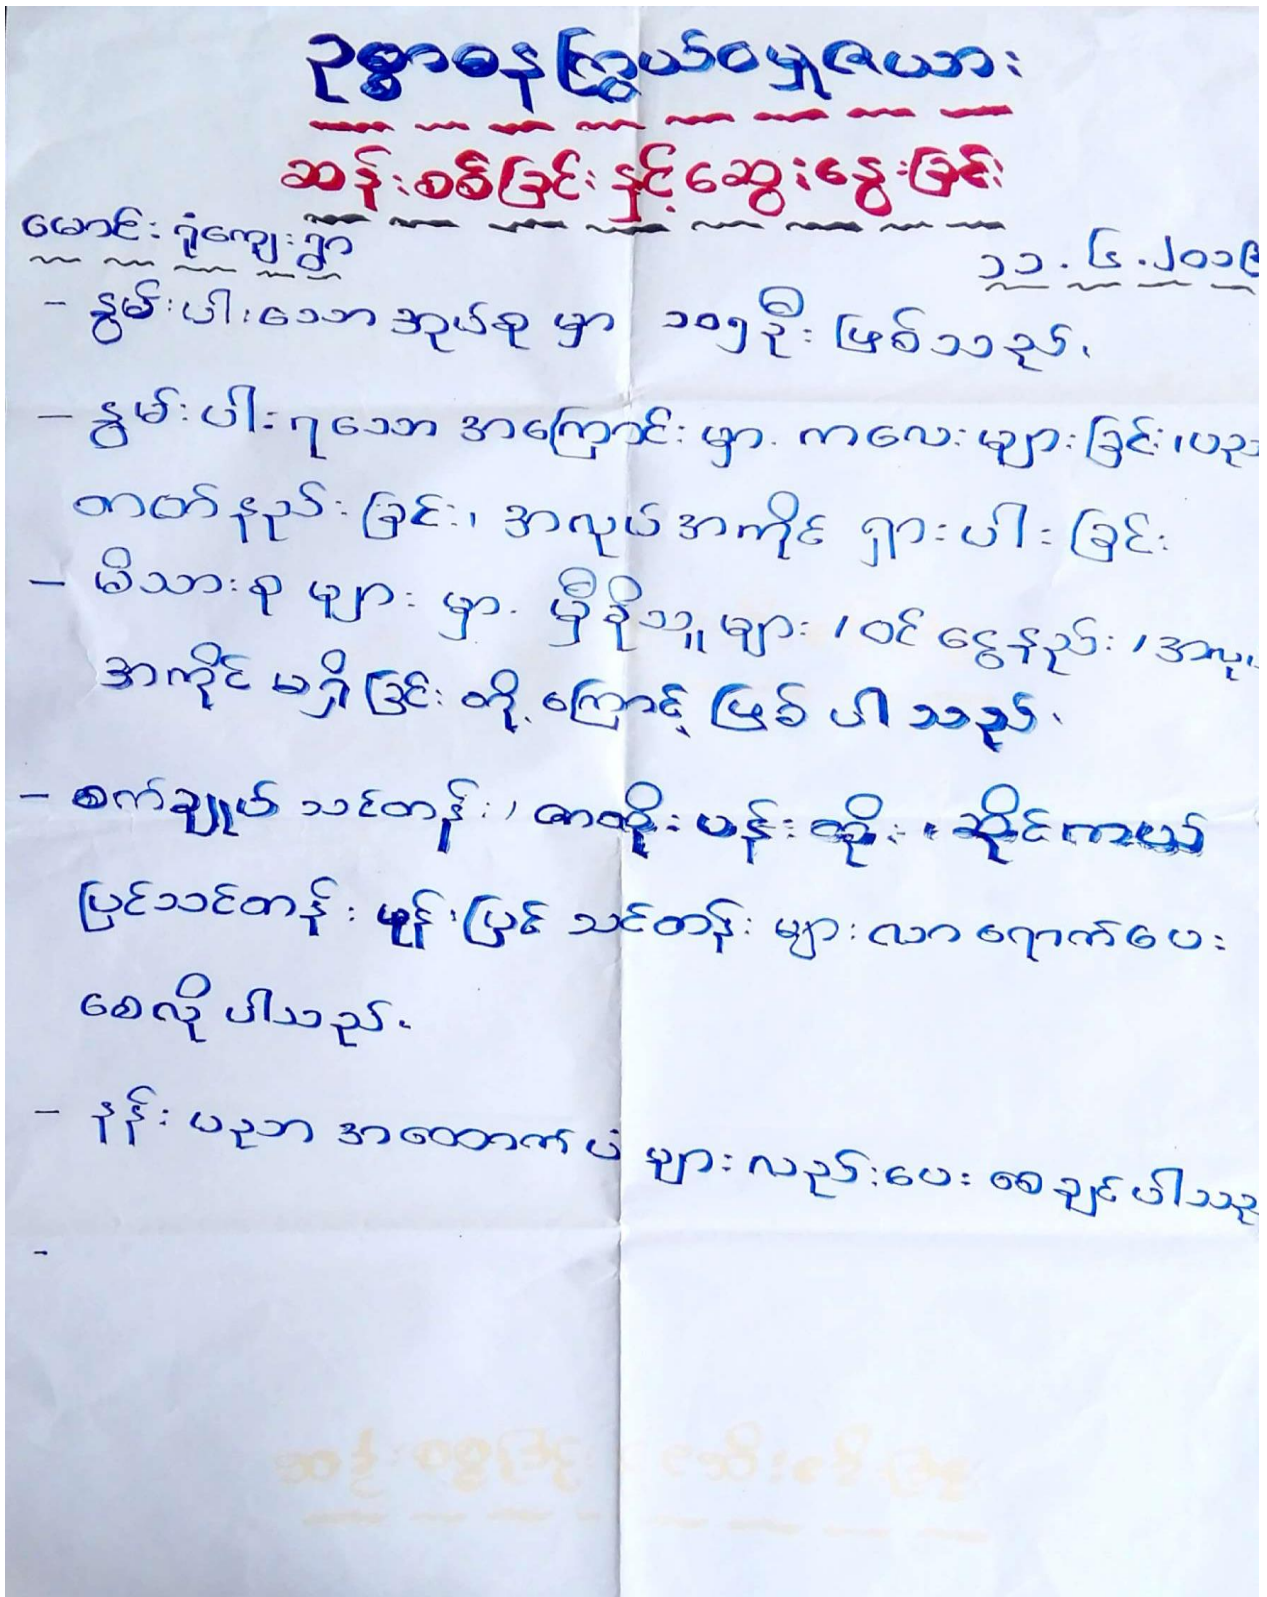 ဥစ္စာဓနကြွယ်ဝမှုဇယား
ဆန်းစစ်ခြင်းနှင့်ဆွေးနွေးခြင်း
မောင်းရုံကျေးရွာ
၁၁.၆.၂၀၁၉
- နွမ်းပါးသောအုပ်စုမှာ ၁၀၅ဦးဖြစ်သည်၊
- နွမ်းပါးရသောအကြောင်းမှာ ကလေးများခြင်း၊ပည
တတ်နည်းခြင်း၊ အလုပ်အကိုင် ရှားပါးခြင်း
- မိသားစုများမှာ မှီခိုသူများ/ဝင်ငွေနည်း/အလု
အကိုင်မရှိခြင်းတို့ကြောင့်ဖြစ်ပါသည်၊
- စက်ချုပ်သင်တန်း/ဇာထိုးပန်းထိုး၊ဆိုင်ကယ်
ပြင်သင်တန်း ဖုန်းပြင်သင်တန်းများလာရောက်ပေး
စေလိုပါသည်၊
- နှန်းပညာအထောက်ပံ့များလည်းပေးစေချင်ပါသည
-